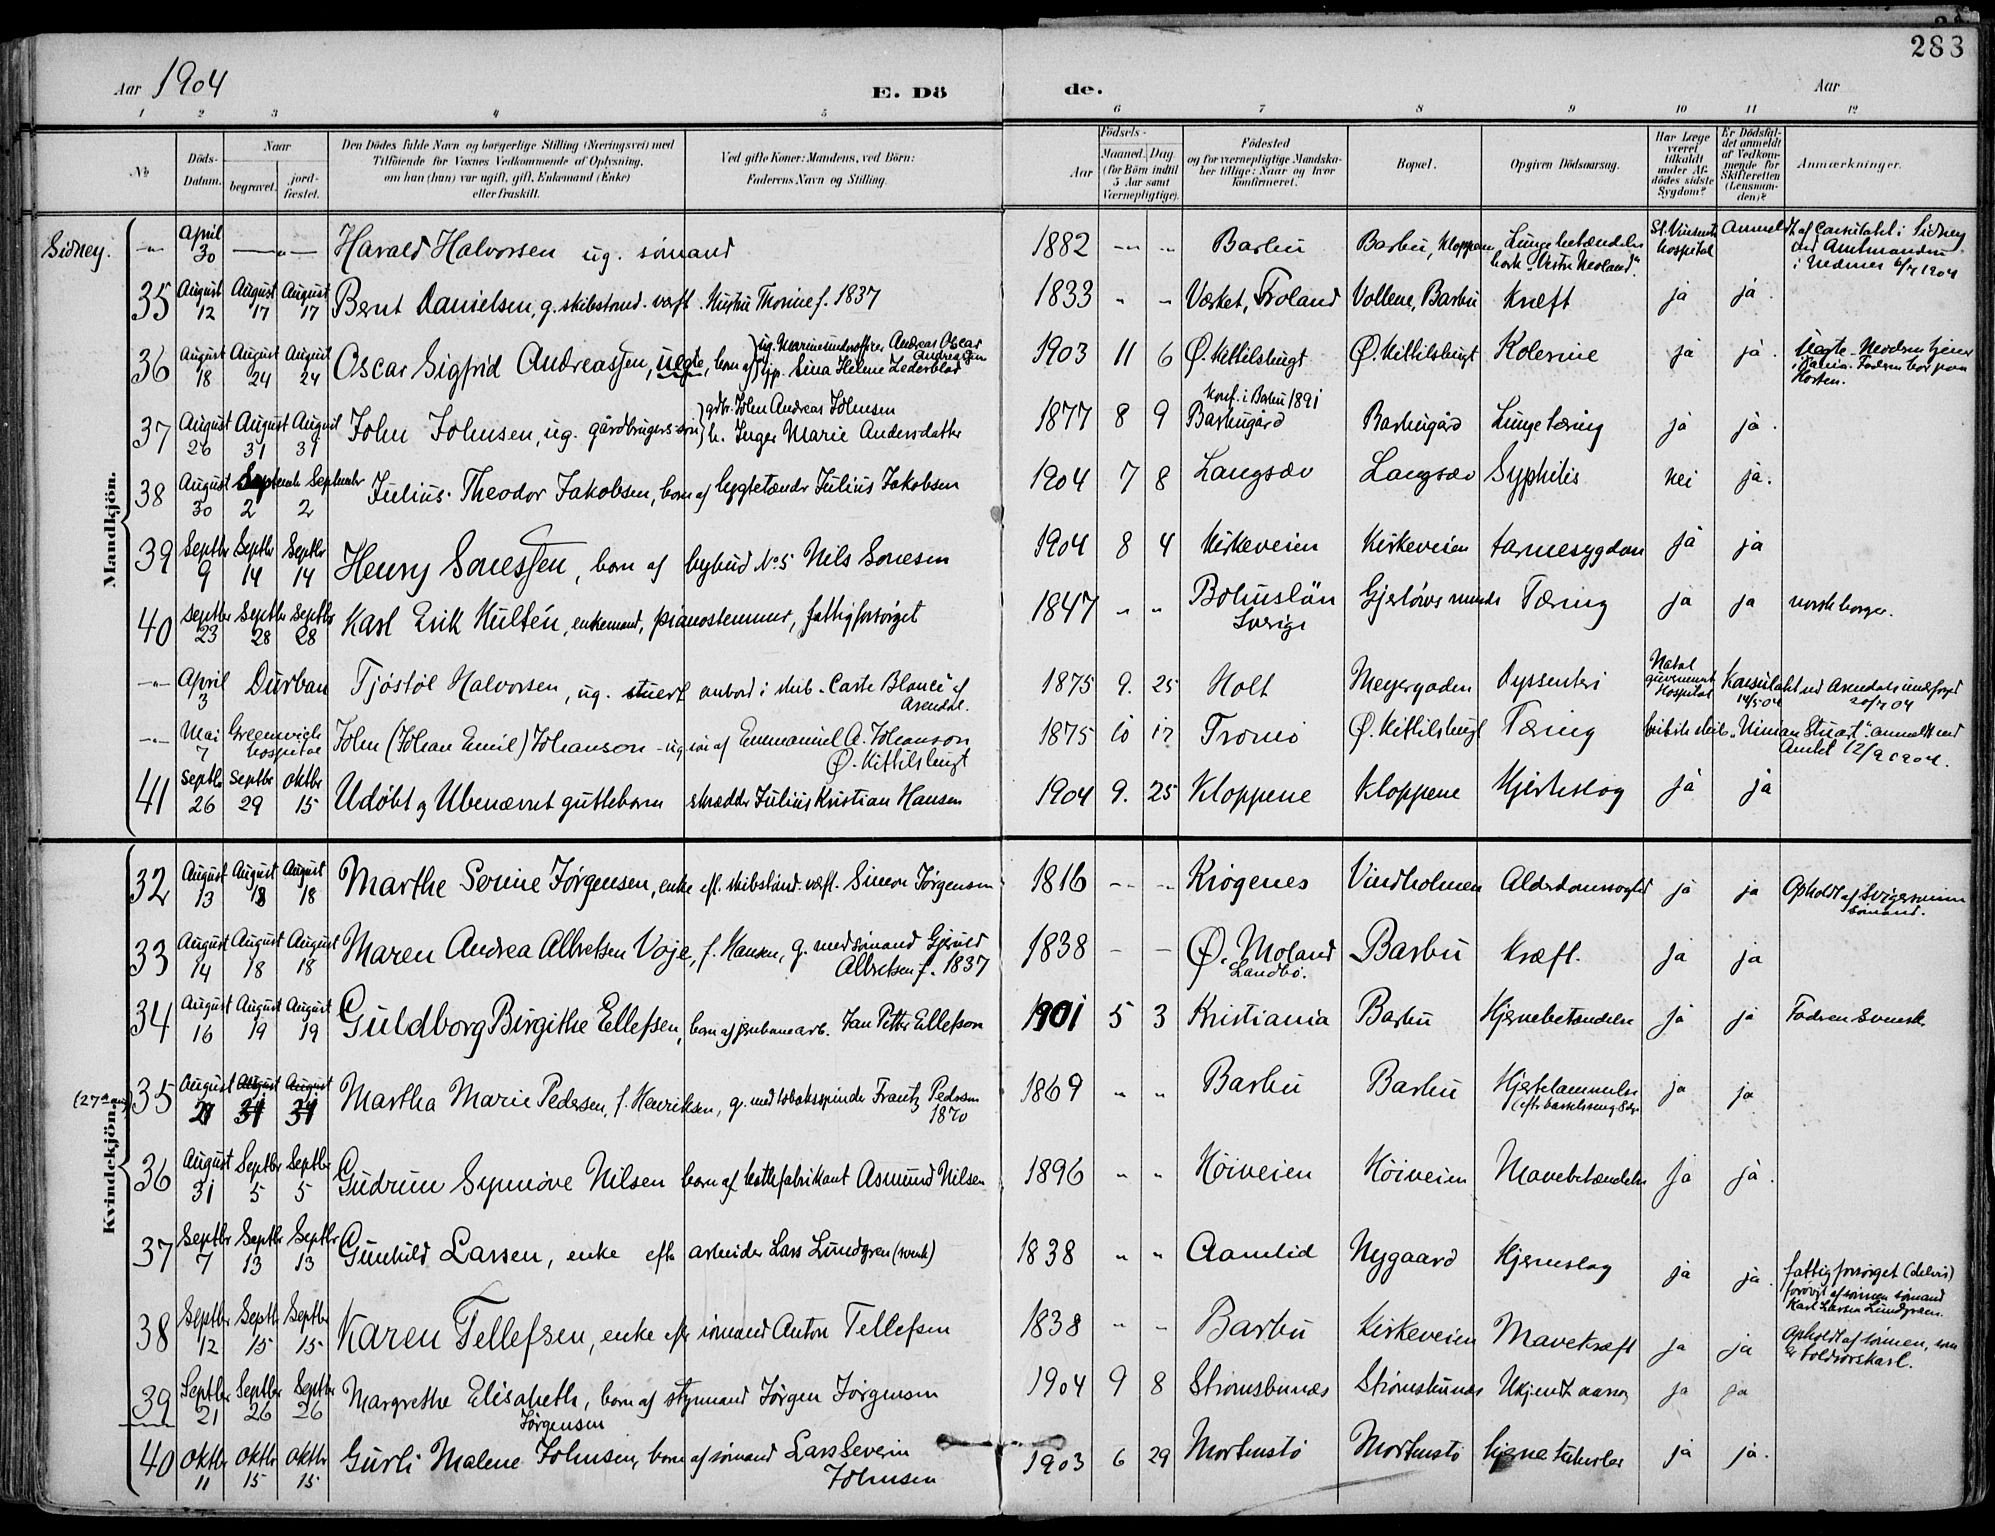 283
Aar 1904 E. Dö de. Aar
1 2 3 4 5 6 7 8 9 10 11 12
No
Döds-Datum.
Naar
begravet.
jord-fæstet.
Den Dödes fulde Navn og borgerlige Stilling (Næringsvei) med
Tilföiende for Voxnes Vedkommende af Oplysning,
om han (hun) var ugift, gift, Enkemand (Enke)
eller fraskilt.
Ved gifte Koner: Mandens, ved Börn:
Faderens Navn og Stilling.
Födsels-
Aar
Maaned. Dag
(for Börn indtil
5 Aar samt
Værnepligtige).
Födested
og for værnepligtige Mandska-
ber tillige: Naar og hvor
konfirmeret.
Bopæl.
Opgiven Dödsaarsag.
Har Læge
været
tilkaldt
under Af-
dödes sidste
Sygdom?
Er Dödsfal-
det anmeldt
af Vedkom-
mende for
Skifteretten
(Lensman-
den)?
Anmærkninger.
Mandkjön.
Sidney. -"- April 30 -"- Harald Halvorsen ug. sömand 1882 -"- " Barbu Barbu, Kloppene Lungebetændelse bark "Vestre Moland". St. Vinsents hospital Anmeldt af Consulatet i Sidney
ved Amtmanden
i Nedenes 6/7 1904
35 August 12 August 17 August 17 Bernt Danielsen, g. skibstömd. verft. Kirstin Thorine f. 1837 1833 " " Værket, Froland Vollene, Barbu Kræft ja ja.
36 August 18 August 24 August 24 Oscar Sigfrid Andreassen, uegte, barn af ug. Marineunderofficer Andreas Oscar Andreassen
pp. Sina Helene Zederblad 1903 11 6 Ø. Kittilsbugt Ø. Kittilsbugt Kolerine ja ja. Uægte - Moderen tjener
i Xania. Faderen bor paa
Horten.
37 August 26 August 31 August 31 John Johnsen, ug. gårdbrugers sön gdbr. John Andreas Johnsen
h. Inger Marie Andersdatter 1877 8 9 Konf. i Barbu 1891
Barbugård Barbugård Lungetæring ja ja.
38 August 30 September 2 September 2 Julius Theodor Jakobsen, barn af lygtetænder Julius Jakobsen 1904 7 8 Langsæv Langsæv Syphilis nei ja.
39 Septbr 9 Septbr 14 Septbr 14 Henry Sonessen, barn af bybud No 5 Nils Sonesen 1904 8 4 Kirkeveien Kirkeveien tarmesygdom ja ja
40 Septbr 23 Septbr 28 Septbr 28 Karl Erik Hultén, enkemand, pianostemmer, fattigforsörget 1847 " " Bohuslän
Sverige Gjerlöws minde Tæring ja ja norsk borger.
-"- April 3 Durban Tjöstöl Halvorsen, ug. stuert ombord i skib "Carte Blance" af
Arendal. 1875 9. 25 Holt Meyergaden Dyssenteri Natal guvernments Hospital Konsulatet 14/5 04 ved Arendals underfoged
20/7 04
-"- Mai 7 Greenwich hospital John (Johan Emil) Johanson - ug sön af Emmanuel A. Johanson
Ø. Kittilsbugt 1875 10 17 Tromö Ø. Kittilsbugt Tæring britisk skib "Ninian Stuart". anmeldt ved
Amtet 12/9 1904.
41 Septbr 26 Septbr 29 Oktbr 15 Udöbt og Ubenævnt guttebarn skrædder Julius Kristian Hansen 1904 9. 25 Kloppene Kloppene Hjerteslag ja ja
Kvindekjön.
32 August 13 August 18 August 18 Marthe Serine Jörgensen, enke eft. skibstömd. verft. Simon Jörgensen 1816 " " Krögenes Vindholmen Alderdomssvaghed ja ja Opholdt af Svigersönnen
sömand.
33 August 14 August 18 August 18 Maren Andrea Albretsen Voje, f. Hansen, g. med sömand Gjeruld
Albretsen f. 1837 1838 - - Ø. Moland
Landbö. Barbu Kræft. ja ja
34 August 16 August 19 August 19 Guldborg Birgithe Ellefsen, barn af jernbanearb. Jan Petter Ellefson 1901 5 3 Kristiania Barbu Hjernebetændelse ja ja Faderen Svensk
(27de aug) 35 August 27 August 31 August 31 Martha Marie Pedersen, f. Henriksen, g. med tobaksspinder Frantz Pedersen
1870 1869 " " Barbu Barbu Hjertelammelse
(efter barselseng 5dg. ja ja
36 August 31 Septbr 5 Septbr 5 Gudrun Synnöve Nilsen barn af kattefabrikant Asmund Nilsen 1896 " " Höiveien Höiveien Mavebetændelse ja ja.
37 Septbr 7 Septbr 13 Septbr 13 Gunhild Larsen, enke efter arbeider Lars Lundgren (svensk) 1838 " " Aamlid Nygaard Hjerneslag ja ja. fattigforsörget (delvis)
forövrigt af sönnen sömand
Karl Larsen Lundgreen.
38 Septbr 12 Septbr 15 Septbr 15 Karen Tellefsen, enke eft sömand Anton Tellefsen 1838 " " Barbu Kirkeveien Mavekræft ja ja Opholdt af sönnen, som
er toldrorskarl.
39 Septbr 21 Septbr 26 Septbr 26 Margrethe Elisabeth, barn af styrmand Jörgen Jörgensen
Jörgensen 1904 9 8 Strömsbunæs Strömsbunæs Ukjendt aarsag ja ja
40 Oktbr 11 Oktbr 15 Oktbr 15 Gurli Malene Johnsen, barn af sömand Lars Severin
Johnsen 1903 6 29 Mortenstö Mortenstö hjerne tuberkler ja ja.